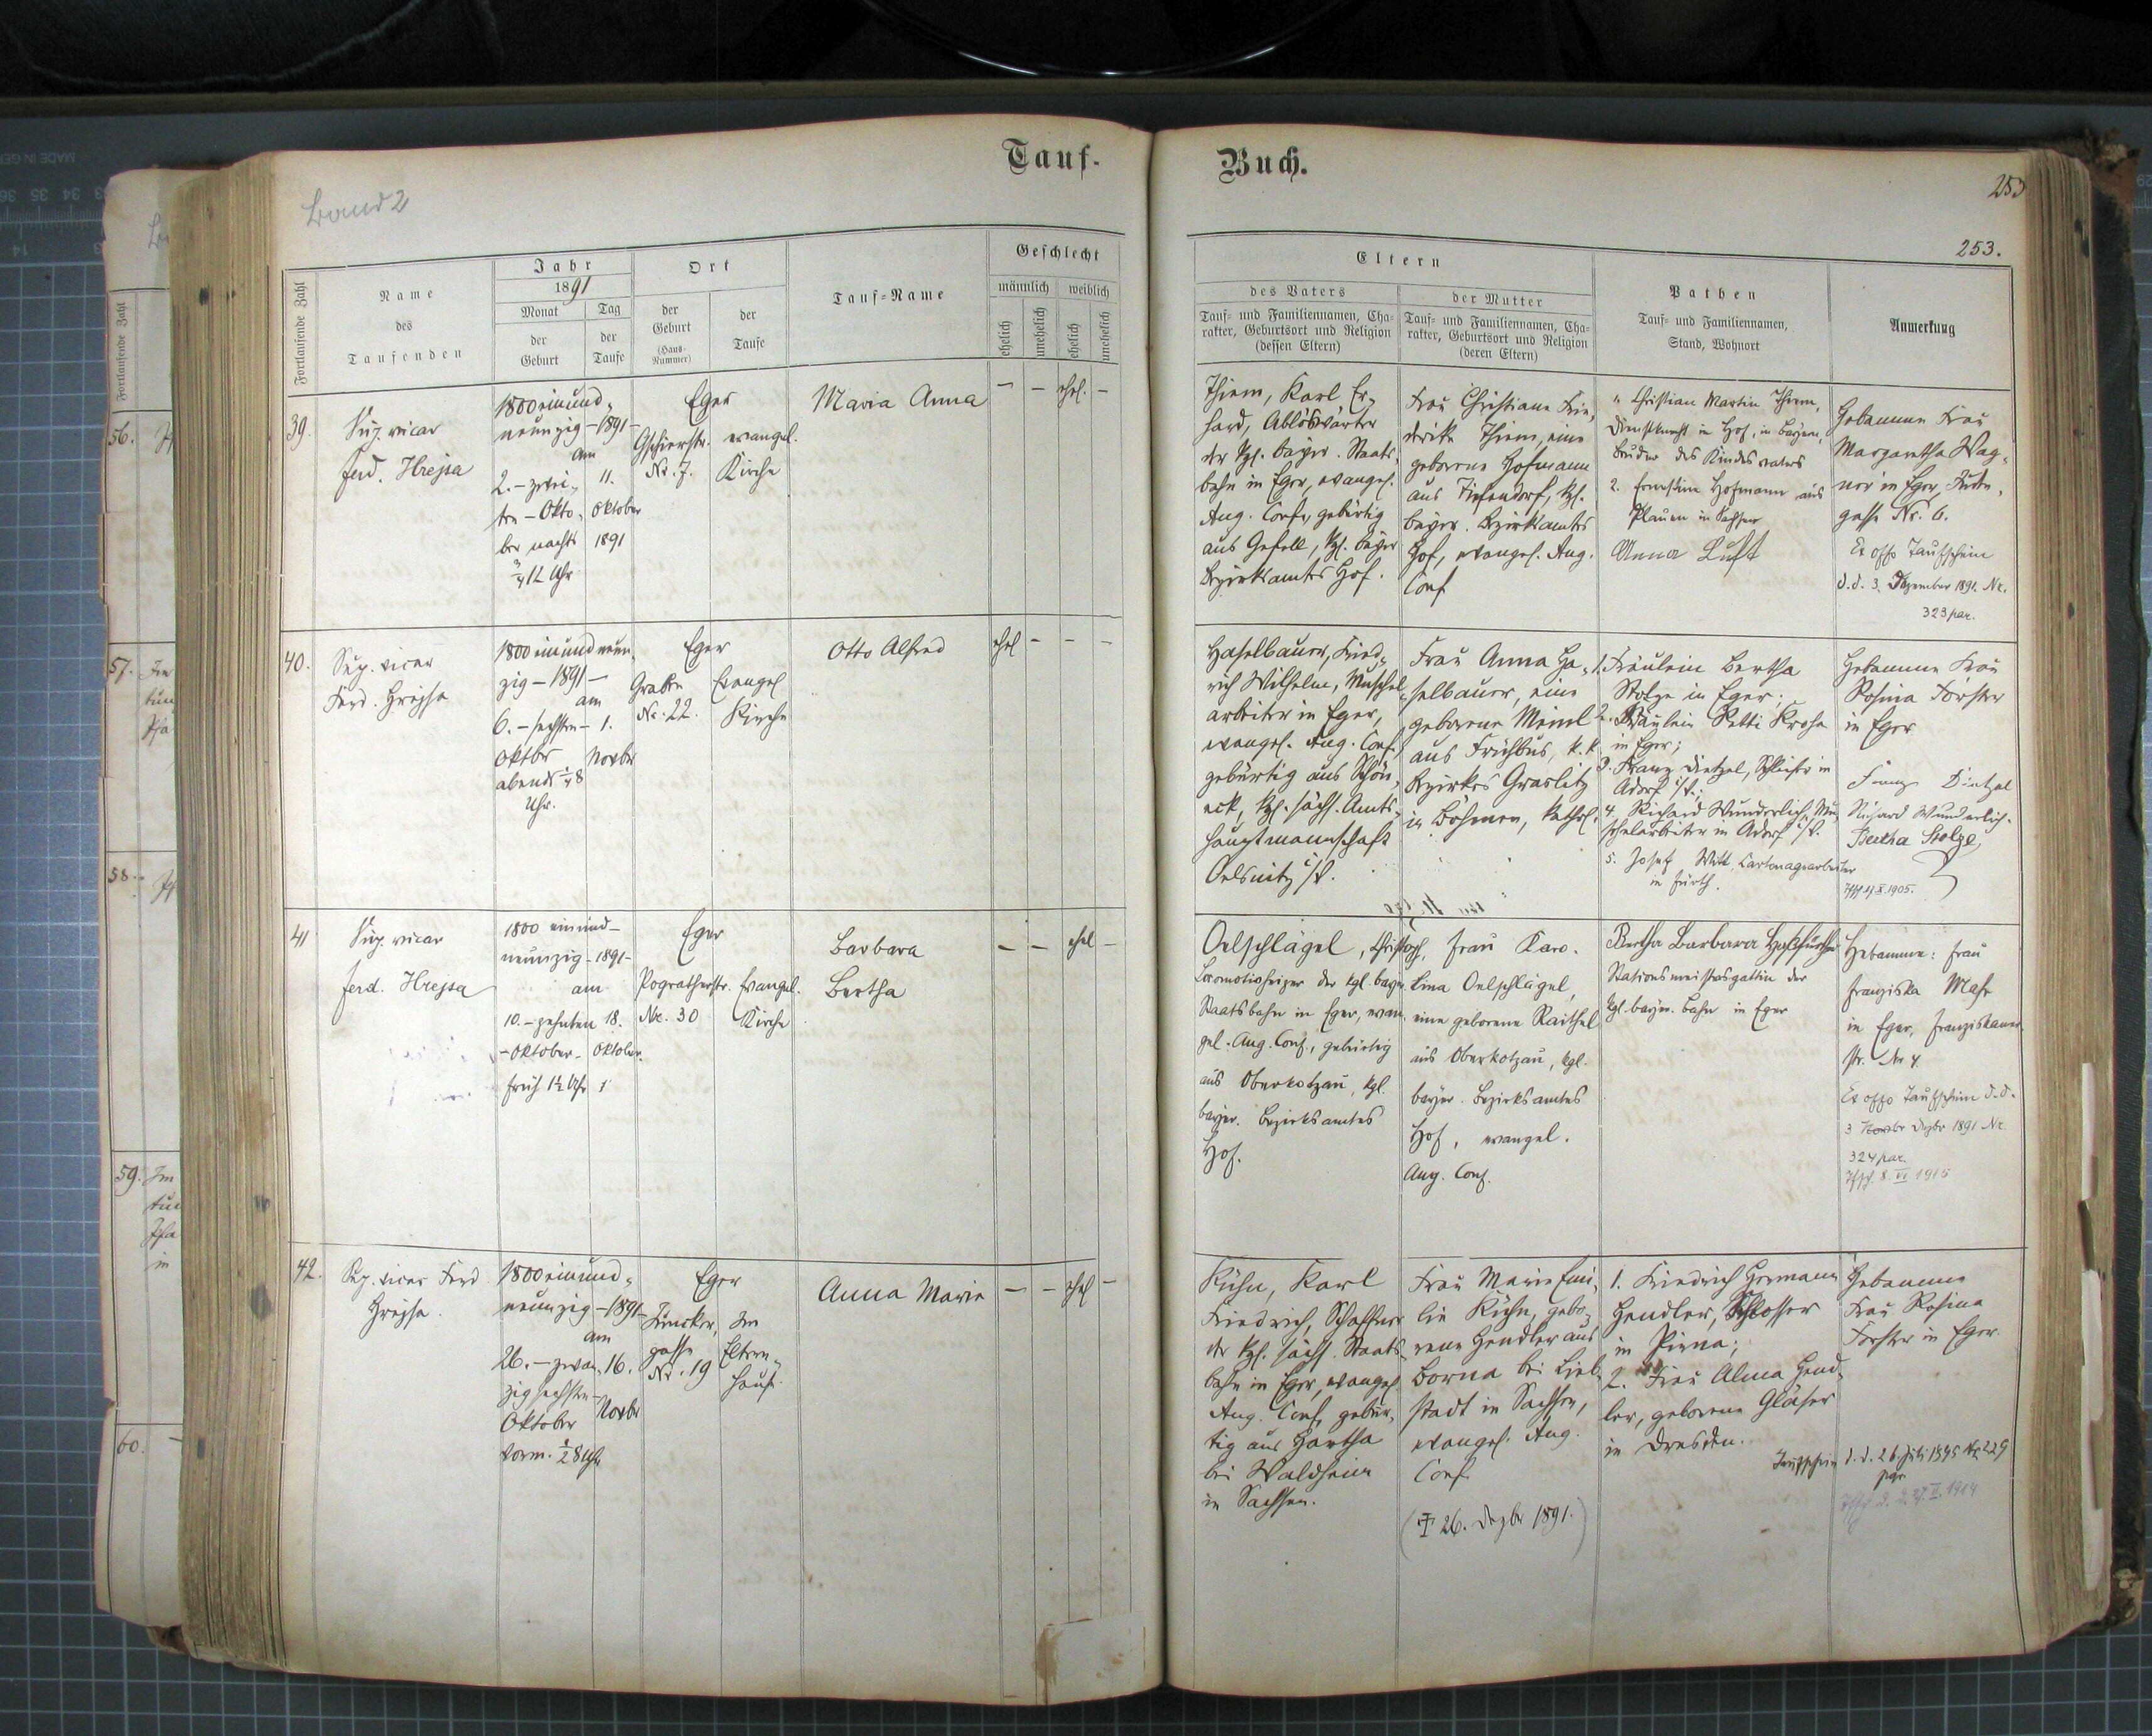 Tauf-
Buch.
Band 2
253
253.
Fortlaufende Zahl
Name
des
Taufenden
Jahr
1891
Monat
Tag
der
Geburt
der
Taufe
Ort
der
Geburt
(Haus-
Nummer)
der
Taufe
Tauf-Name
Geschlecht
männlich
weiblich
ehelich
unehelich
ehelich
unehelich
Eltern
des Vaters
Tauf- und Familiennamen, Cha-
rakter, Geburtsort und Religion
(dessen Eltern)
der Mutter
Tauf- und Familiennamen, Cha-
rakter, Geburtsort und Religion
(deren Eltern)
Pathen
Tauf- und Familiennamen,
Stand, Wohnort
Anmerkung
39.
Sup. vicar
Ferd. Hrejsa
1800 einund-
neunzig - 1891 -
am
2. - zwei-
ten - Okto-
ber nachts
3/4 12 Uhr
11.
Oktober
1891
Eger
Gschierstr.
Nr. 7.
evangel.
Kirche
Maria Anna
— — ehel. —
Thiem, Karl Er-
hard, Ablöswärter
der kgl. bayer. Staats-
bahn in Eger, evangel.
Aug. Conf., gebürtig
aus Gefell, kgl. bayer
Bezirksamtes Hof.
Frau Christiane Frie-
derike Thiem, eine
geborene Hofmann
aus Tiefendorf, kgl.
bayer. Bezirksamtes
Hof, evangel. Aug.
Conf
Christian Martin Thiem,
Dienstknecht in Hof, in Bayern,
Bruder des Kindesvaters
2. Ernestine Hofmann aus
Plauen in Sachsen
Anna Luft
Hebamme Frau
Margaretha Wag-
ner in Eger, Juden-
gasse Nr. 6.
Ex offo Taufschein
d.d. 3. Dezember 1891. Nr.
323 par.
40.
Sup. vicar
Ferd. Hrejsa
1800 einundneun-
zig - 1891 -
am
6. - sechsten -
Oktbr
abends 1/4 8
Uhr.
1.
Novbr
Eger
Graben
Nr. 22.
Evangel
Kirche
Otto Alfred
ehel — — —
Haselbauer, Fried-
rich Wilhelm, Muschel-
arbeiter in Eger,
evangel. Aug. Conf.,
gebürtig aus Schön-
eck, kgl. sächs. Amts-
hauptmannschaft
Oelsnitz i/V.
Frau Anna Ha-
selbauer, eine
geborene Meinl
aus Frühbus, k.k.
Bezirkes Graslitz
in Böhmen, kathol.
1. Fräulein Bertha
Stolze in Eger;
2. Fräulein Betti Kroha
in Eger;
3. Franz Dietzel, Schleifer in
Adorf i/V.;
4. Richard Wunderlich, Mu-
schelarbeiter in Adorf i/V.
5. Josef Witt, Cartonagearbeiter
in Fürth.
Hebamme Frau
Rosina Forster
in Eger
Franz Dietzel
Richard Wunderlich.
Bertha Stolze,
1905.
41
Sup. vicar
Ferd. Hrejsa
1800 einund-
neunzig - 1891 -
am
10. - zehnten
- Oktober -
früh 1/2 Uhr
18.
Oktober.
Eger
Pogratherstr.
Nr. 30
Evangel.
Kirche
Barbara
Bertha
— — ehel —
Oelschlägel, Christoph,
Locomotivheizer der kgl. bayer.
Staatsbahn in Eger, evan-
gel. Aug. Conf., gebürtig
aus Oberkotzau, kgl.
bayer. Bezirksamtes
Hof.
Frau Karo-
lina Oelschlägel,
eine geborene Raithel
aus Oberkotzau, kgl.
bayer. Bezirksamtes
Hof, evangel.
Aug. Conf.
Bertha Barbara
Stationsmeistersgattin der
kgl. bayer. Bahn in Eger
Hebamme: Frau
Franziska
in Eger, Franziskaner-
str. Nr 4.
Ex offo Taufschein d.d.
3 Novbr Dezbr 1891 Nr.
324 par.
8. VI 1915
42.
Sup. vicar Ferd
Hrejsa.
1800 einund-
neunzig - 1891 -
am
26. - zwan-
zigsechsten -
Oktober
vorm. 1/2 8 Uhr
16.
Novbr
Eger
gasse
Nr. 19
Im
Eltern-
haus.
Anna Marie
— — ehel —
Kühn, Karl
Friedrich, Schaffner
der kgl. sächs. Staats-
bahn in Eger, evangel
Aug. Conf, gebür-
tig aus Hartha
bei Waldheim
in Sachsen.
Frau Marie Emi-
lie Kühn, gebo-
rene Hendler aus
Borna bei Lieb-
stadt in Sachsen,
evangel. Aug.
Conf.
(† 26. Dezbr 1891.)
1. Friedrich Hermann
Hendler, Schlosser
in Pirna;
2. Frau Alma Hend-
ler, geborene Gläser
in Dresden.
Hebamme
Frau Rosina
Forster in Eger.
Taufschein d. d. 26 Juli 1895 Nr 229
par
1914
56.
57.
58.
59.
60.